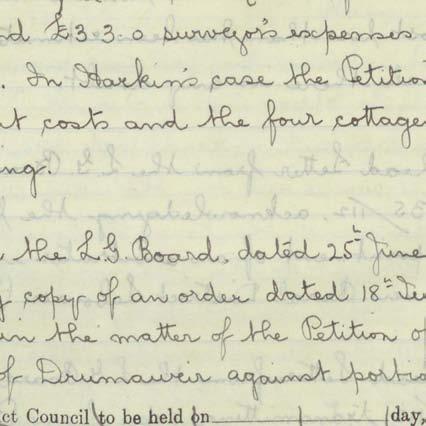 nd £3.3.0 surveyor's expenses
. In Harkin's case the Petition
t costs and the four cottage
ing.
the L.G. Board, dated 25th June
y copy of an order dated 18th
in the matter of the Petition of
of Drumaweir against portio
ct Council to be held on day,